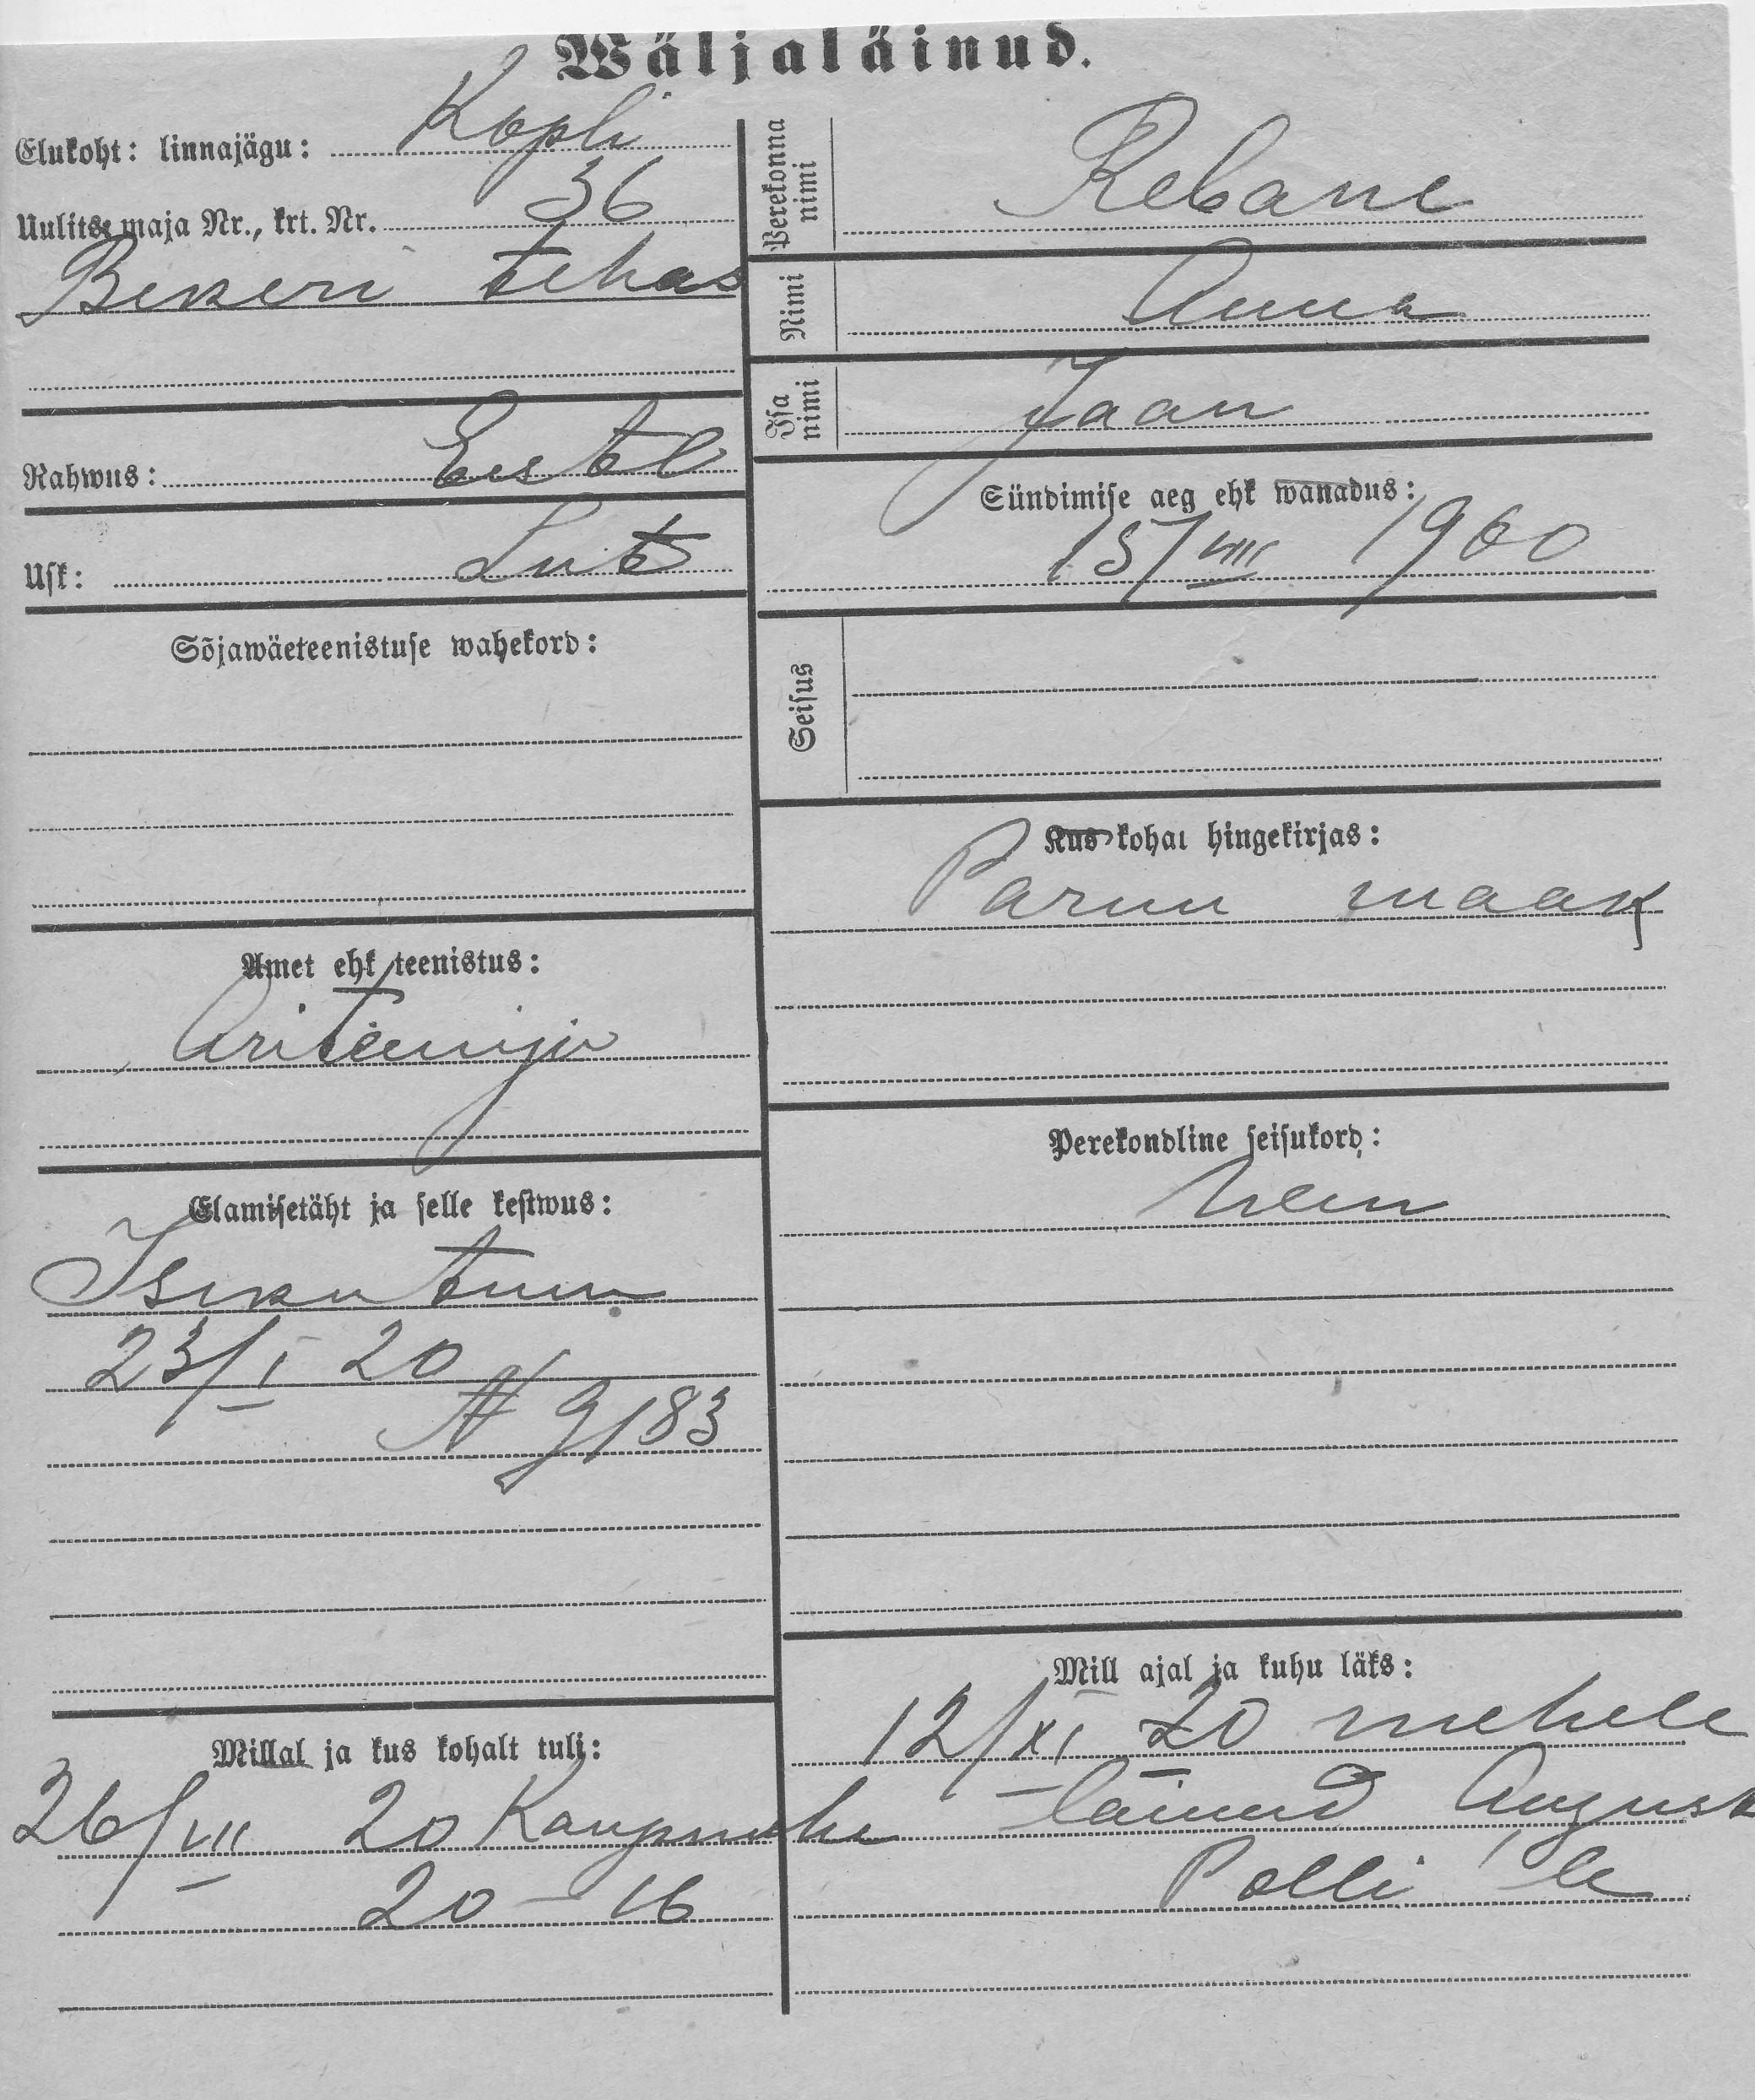 Wäljaläinud.
Elukoht: linnajägu: Kopli
Uulitse maja Nr., krt. Nr. 36
Bekeri tehas
Rahwus: Eestl
Usk: Lut
Sõjawäeteenistuse wahekord:
Amet ehk teenistus:
Äriteenija
Elamisetäht ja selle kestwus:
Isiku tunn
23/I 20
N 9183
Millal ja kus kohalt tuli:
26/VII 20 Kaupmehe
20-16
Perekonna nimi Rebane
Nimi Anna
Isa nimi Jaan
Sündimise aeg ehk wanadus:
15/VIII 1900
Seisus
Kus kohal hingekirjas:
Pärnu maak
Perekondline seisukord:
Mill ajal ja kuhu läks:
12/XI 20 mehele
läinud August
Polli'le